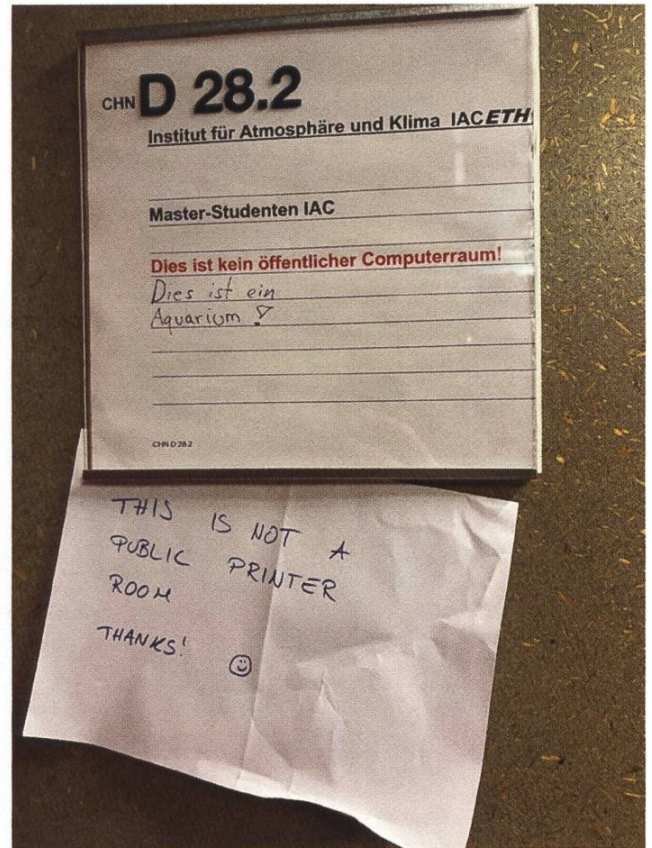 CHN D 28.2
Institut für Atmosphäre und Klima IACETH
Master-Studenten IAC
Dies ist kein öffentlicher Computerraum!
Dies ist ein
Aquarium !
CHN D 28.2
THIS IS NOT A
PUBLIC PRINTER
ROOM
THANKS!